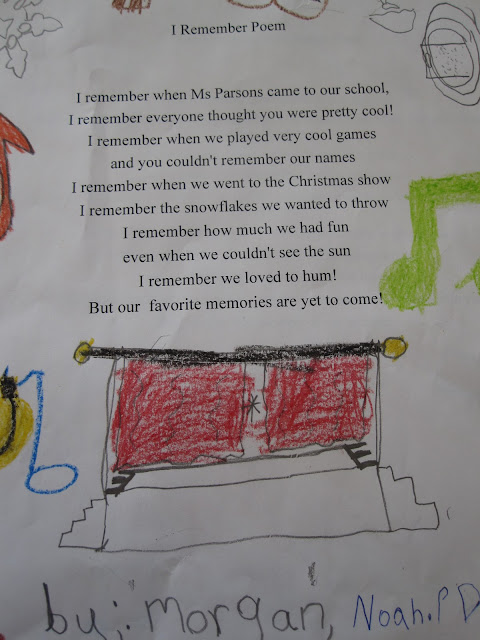 I Remember Poem
I remember when Ms Parsons came to our school,
I remember everyone thought you were pretty cool!
I remember when we played very cool games
and you couldn't remember our names
I remember when we went to the Christmas show
I remember the snowflakes we wanted to throw
I remember how much we had fun
even when we couldn't see the sun
I remember we loved to hum!
But our favorite memories are yet to come!
by;. Morgan, Noah.P D